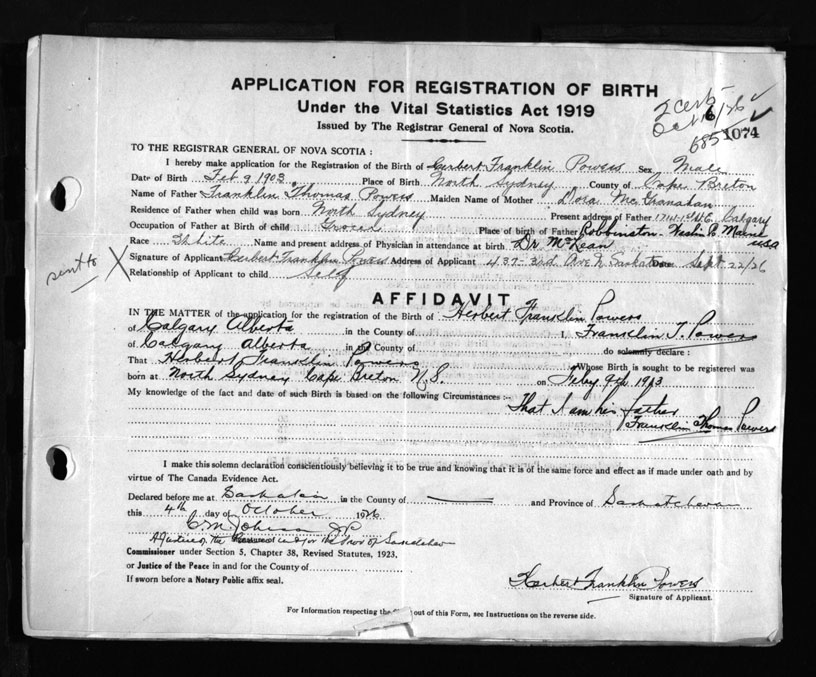 APPLICATION FOR REGISTRATION OF BIRTH
Under the Vital Statistics Act 1919
Issued by The Registrar General of Nova Scotia.
2 cert
Oct 16/26
685 1074
TO THE REGISTRAR GENERAL OF NOVA SCOTIA :
I hereby make application for the Registration of the Birth of Herbert Franklin Powers Sex Male
Date of Birth Feb 9 1903 Place of Birth North Sydney County of Cape Breton
Name of Father Franklin Thomas Powers Maiden Name of Mother Dora McGranahan
Residence of Father when child was born North Sydney Present address of Father Calgary
Occupation of Father at Birth of child Grocer Place of birth of Father Robbinston Washin Co Maine USA
Race White Name and present address of Physician in attendance at birth Dr. McLean
sent to X Signature of Applicant Herbert Franklin Powers Address of Applicant 437-3rd Ave N Saskatoon Date Sept 22/26
Relationship of Applicant to child Self
AFFIDAVIT
IN THE MATTER of the application for the registration of the Birth of Herbert Franklin Powers
of Calgary Alberta in the County of I, Franklin T. Powers
of Calgary Alberta in the County of do solemnly declare :
That Herbert Franklin Powers Whose Birth is sought to be registered was
born at North Sydney Cape Breton N.S. on Feby 9th 1903
My knowledge of the fact and date of such Birth is based on the following Circumstances :-
That I am his father
Franklin Thomas Powers
I make this solemn declaration conscientiously believing it to be true and knowing that it is of the same force and effect as if made under oath and by
virtue of The Canada Evidence Act.
Declared before me at Saskatoon in the County of and Province of Saskatchewan
this 4th day of October 1926
C. M. Johnson J.P.
A Justice of the Peace in & for the Prov of Saskatchewan
Commissioner under Section 5, Chapter 38, Revised Statutes, 1923,
or Justice of the Peace in and for the County of
If sworn before a Notary Public affix seal.
Herbert Franklin Powers
Signature of Applicant.
For Information respecting the out of this Form, see Instructions on the reverse side.